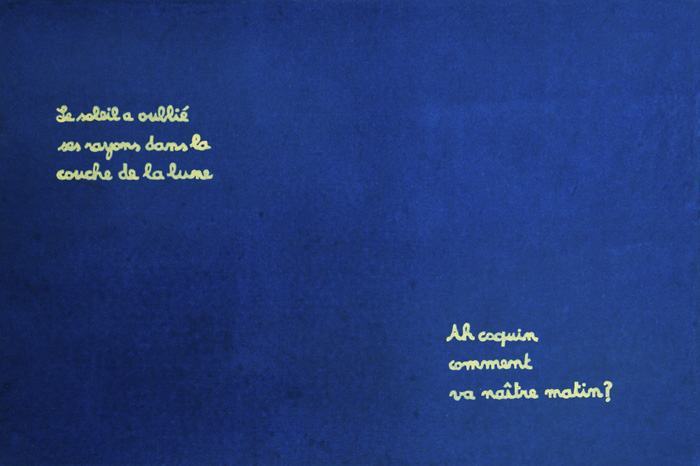 Le soleil a oublié
ses rayons dans la
couche de la lune
Ah coquin
comment
va naître matin?